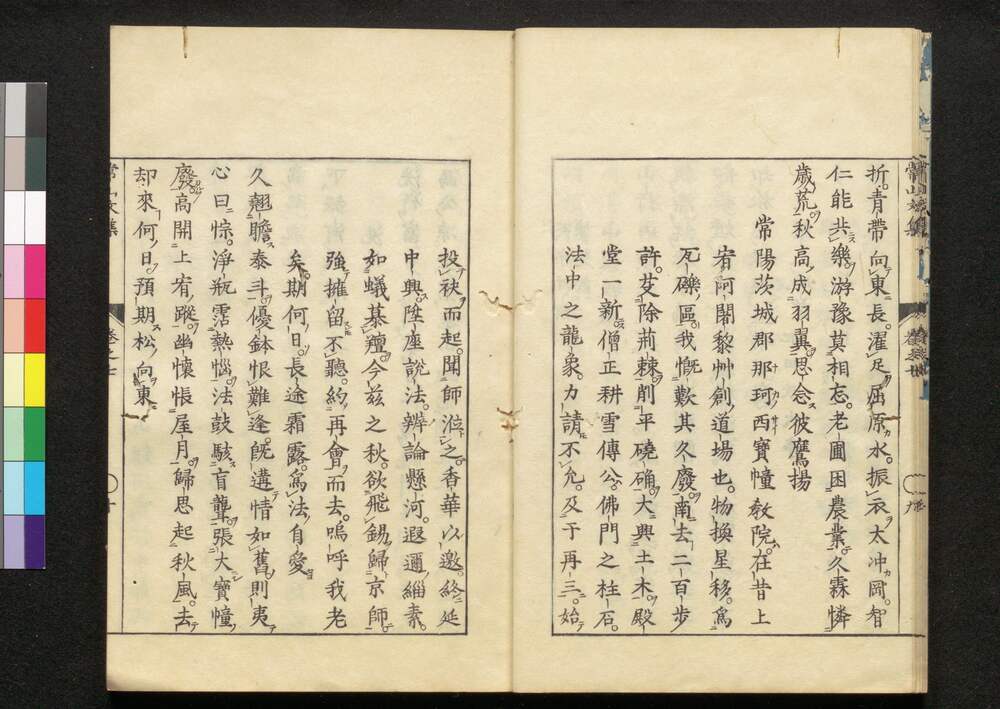 折青帶向東長濯足屈原水振衣太冲岡智
仁能共樂游豫莫相忘老圃困農業久霖憐
歲荒秋高成羽翼思念彼鷹揚
常陽茨城郡那珂西寶幢教院在昔上
宥阿闍黎艸創道場也物換星移爲
瓦礫區我慨歎其久廢南去二百步
許芟除荊棘削平磽确大興土木殿
堂一新僧正耕雪傳公佛門之柱石
法中之龍象力請不允及于再三始
投袂而起聞師涖之香華以邀終延
中興陞座說法辨論懸河遐邇緇素
如蟻慕羶今茲之秋欲飛錫歸京師
強擁留不聽約再會而去嗚呼我老
矣期何日長途霜露爲法自愛
久翹瞻泰斗優鉢恨難逢旣遘情如舊則夷
心曰悰淨瓶霑熱惱法鼓駭盲聾張大寶幢
廢高開上宥蹤幽懷悵屋月歸思起秋風去
却來何日預期松向東
常山文集
卷之七
十